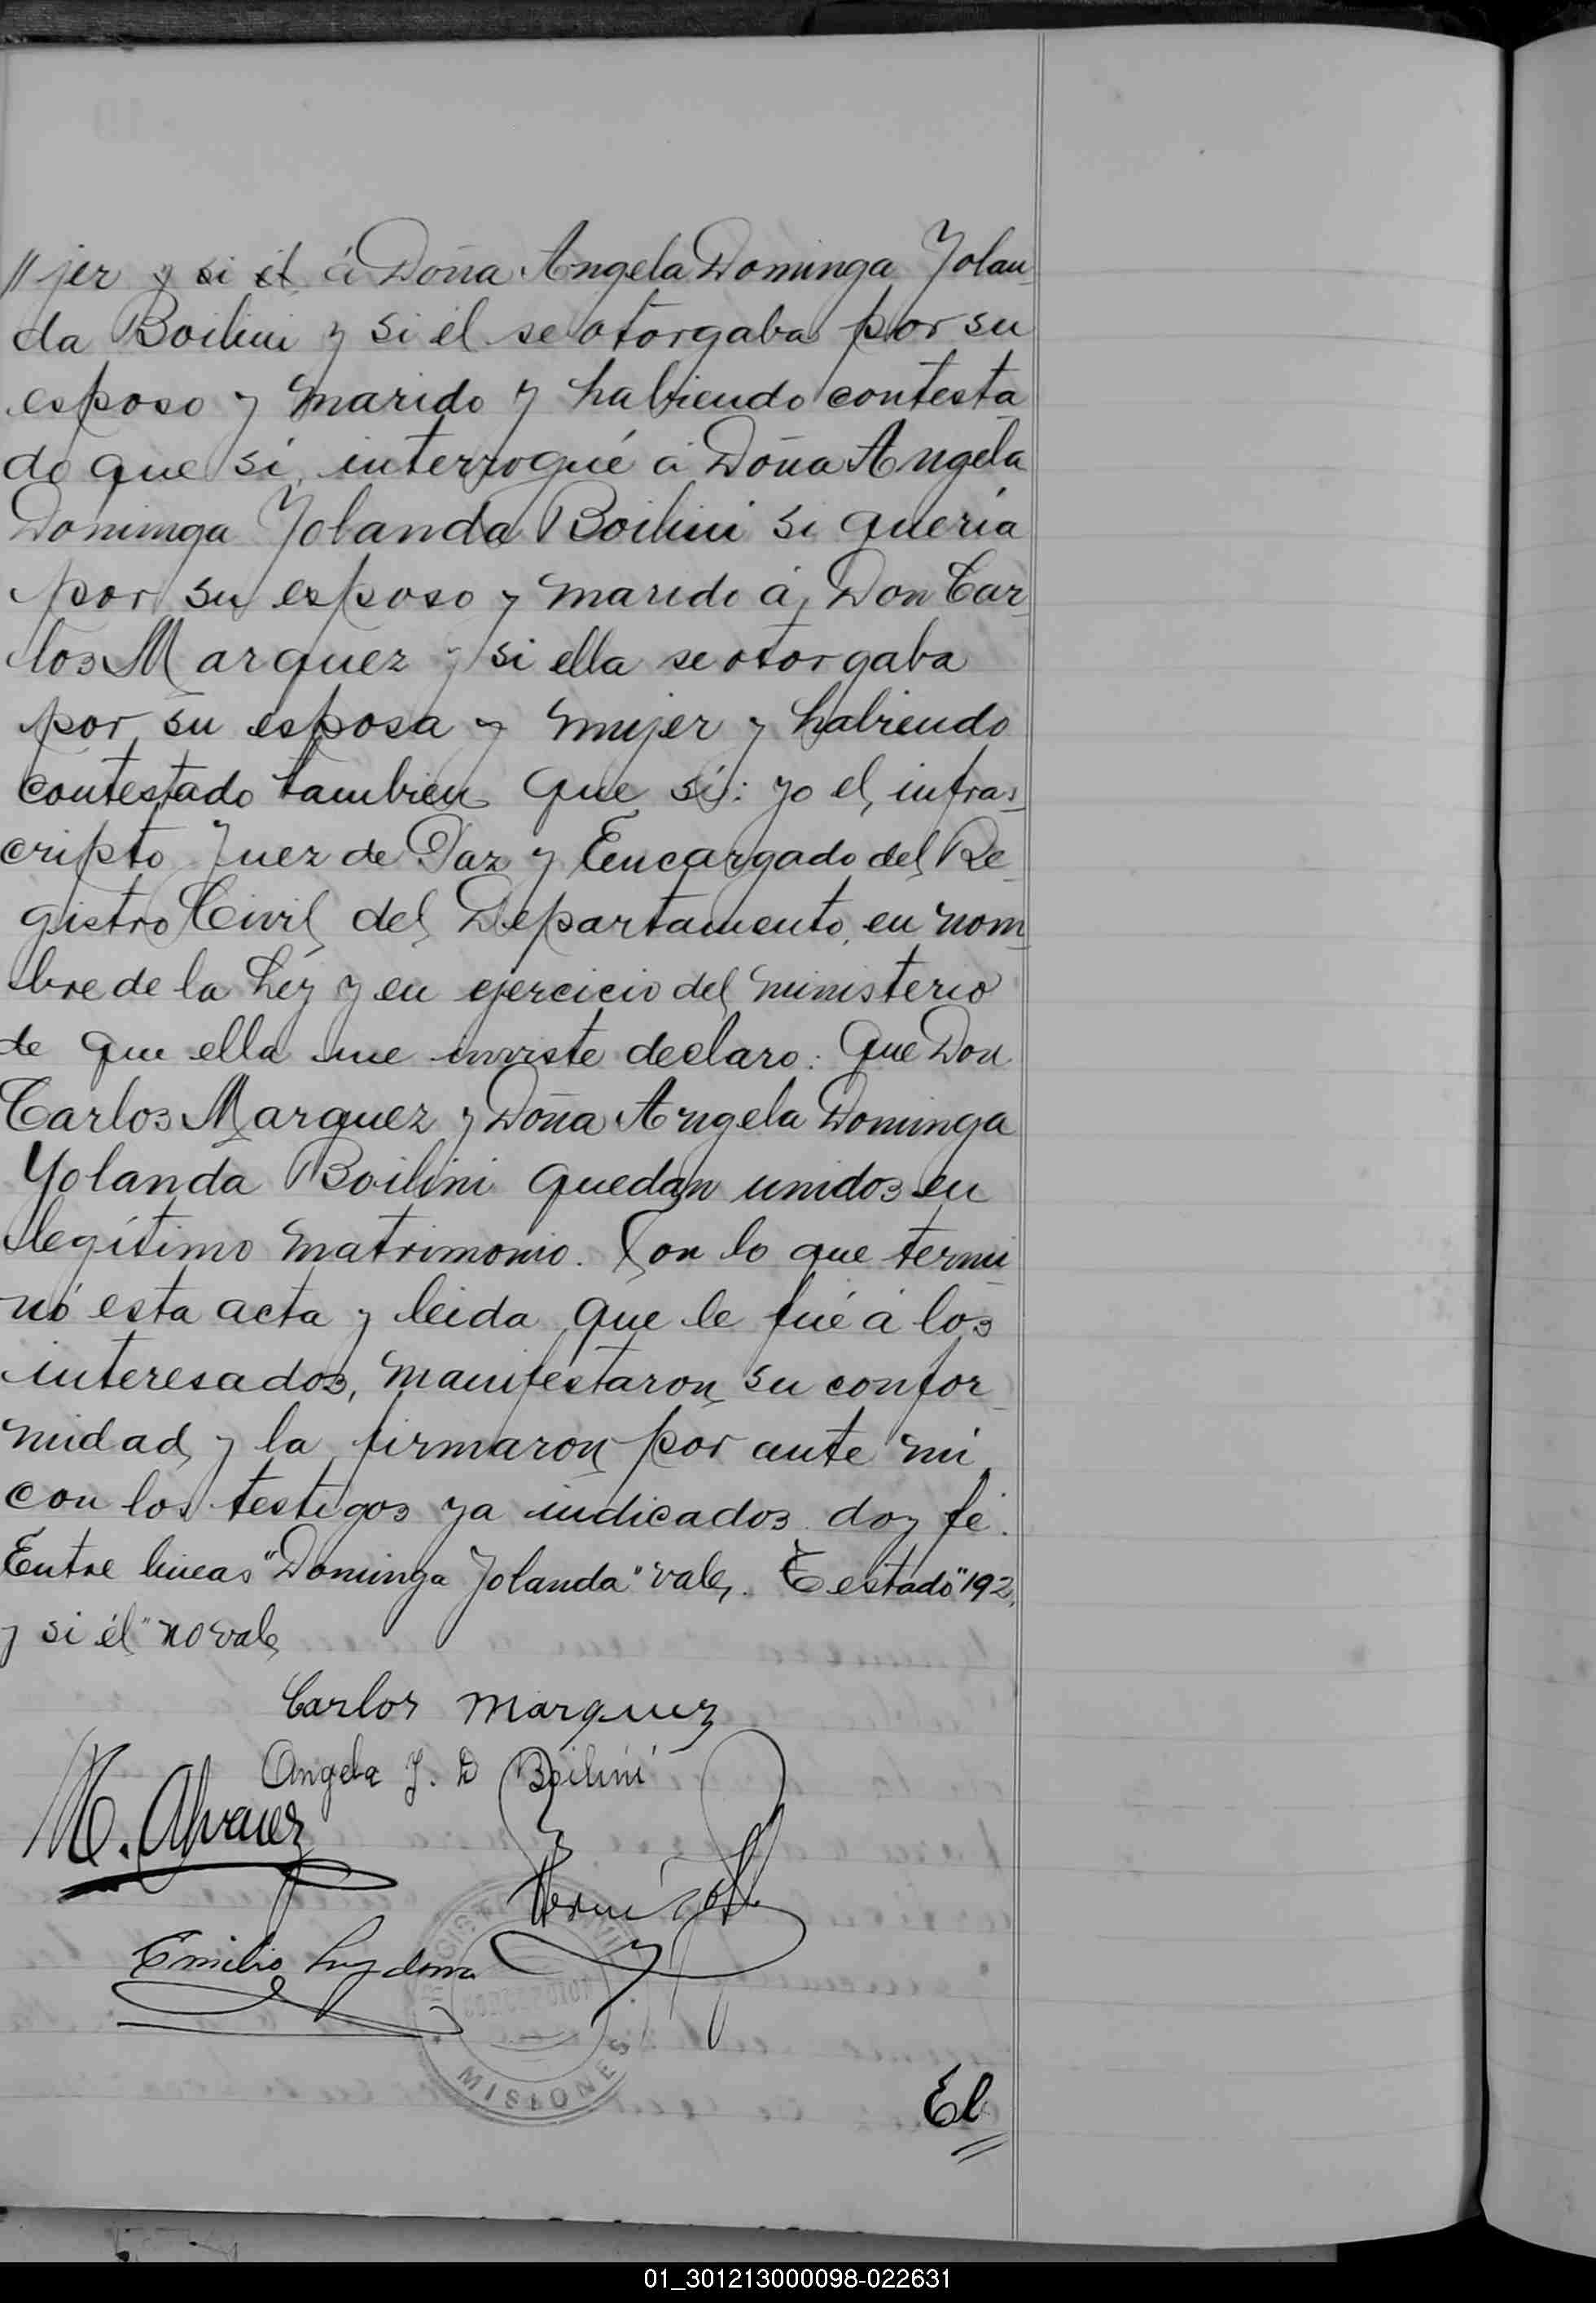 // jer y si él á Doña Angela Dominga Yolan
da Boilini y si él se otorgaba por su
esposo y marido y habiendo contesta
do que sí, interrogué á Doña Angela
Dominga Yolanda Boilini si quería
por su esposo y marido á Don Car
los Marquez y si ella se otorgaba
por su esposa y mujer y habiendo
contestado tambien que sí: yo el infras
cripto Juez de Paz y Encargado del Re
gistro Civil del Departamento, en nom
bre de la Léy y en ejercicio del ministerio
de que ella me inviste declaro: Que Don
Carlos Marquez y Doña Angela Dominga
Yolanda Boilini quedan unidos en
legítimo matrimonio. Con lo que termi
nó esta acta y leida que le fué á los
interesados, manifestaron su confor
midad y la firmaron por ante mi
con los testigos ya indicados doy fé.
Entre lineas "Dominga Yolanda" vale. Testado "192,
y si él" no vale
Carlos Marquez
Angela Y. D Boilini
M. Alvarez
Emilio
MISIONES
El
01_301213000098-022631